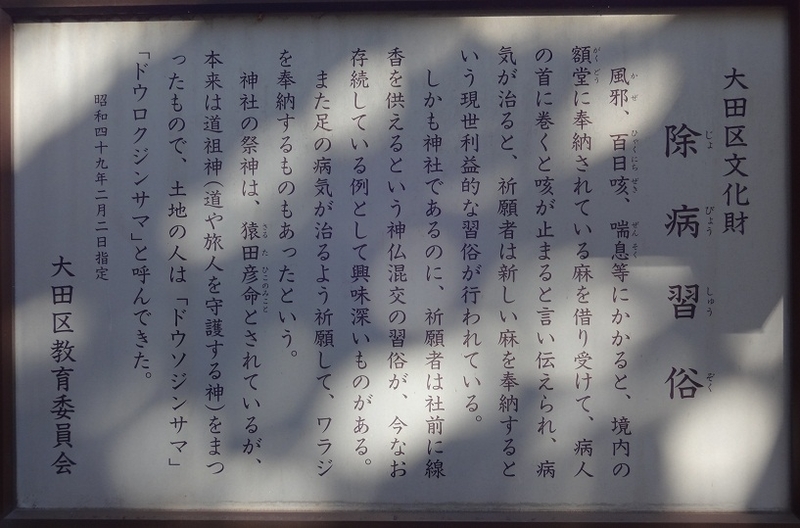 大田区文化財
除病習俗
風邪、百日咳、喘息等にかかると、境内の
額堂に奉納されている麻を借り受けて、病人
の首に巻くと咳が止まると言い伝えられ、病
気が治ると、祈願者は新しい麻を奉納すると
いう現世利益的な習俗が行われている。
しかも神社であるのに、祈願者は社前に線
香を供えるという神仏混交の習俗が、今なお
存続している例として興味深いものがある。
また足の病気が治るよう祈願して、ワラジ
を奉納するものもあったという。
神社の祭神は、猿田彦命とされているが、
本来は道祖神(道や旅人を守護する神)をまつ
ったもので、土地の人は「ドウソジンサマ」
「ドウロクジンサマ」と呼んできた。
昭和四十九年二月二日指定
大田区教育委員会